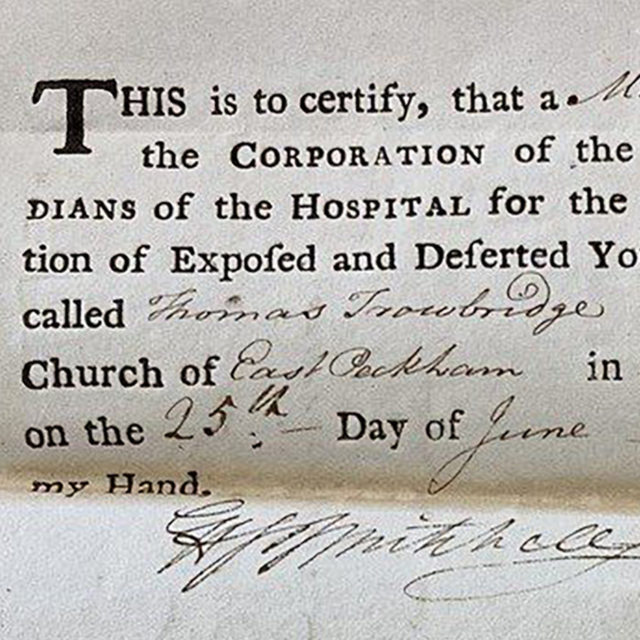 THIS is to certify, that a M
the CORPORATION of the
DIANS of the HOSPITAL for the
tion of Expoſed and Deſerted Yo
called Thomas Trowbridge
Church of East Peckham in
on the 25th Day of June
my Hand.